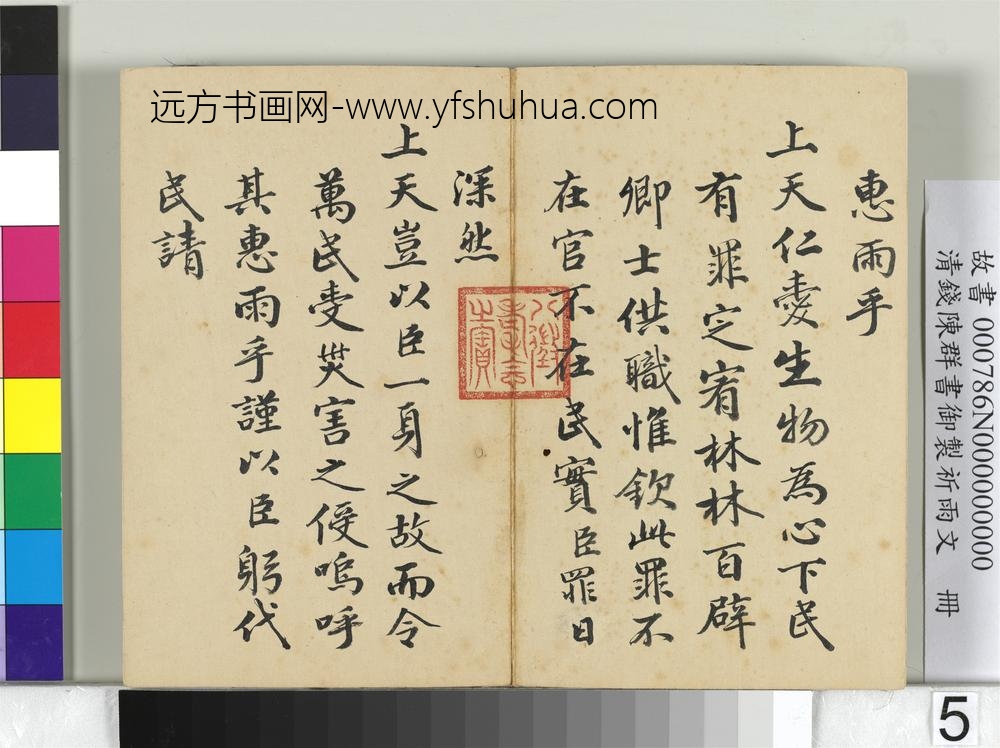 远方书画网-www.yfshuhua.com
惠雨乎
上天仁愛生物為心下民
有罪定宥林林百辟
卿士供職惟欽此罪不
在官不在民實臣罪日
深然
上天豈以臣一身之故而令
萬民受災害之侵嗚呼
其惠雨乎謹以臣躬代
民請
八徵耄念之寶
故書 000786N000000000
清錢陳群書御製祈雨文 冊
5